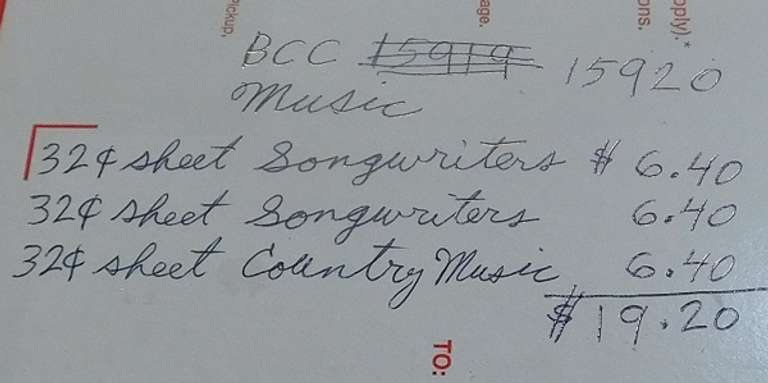 BCC 15919 15920
Music
32¢ sheet Songwriters $ 6.40
32¢ sheet Songwriters 6.40
32¢ sheet Country Music 6.40
$19.20
TO:
Pickup,
age.
ons.
pply).*